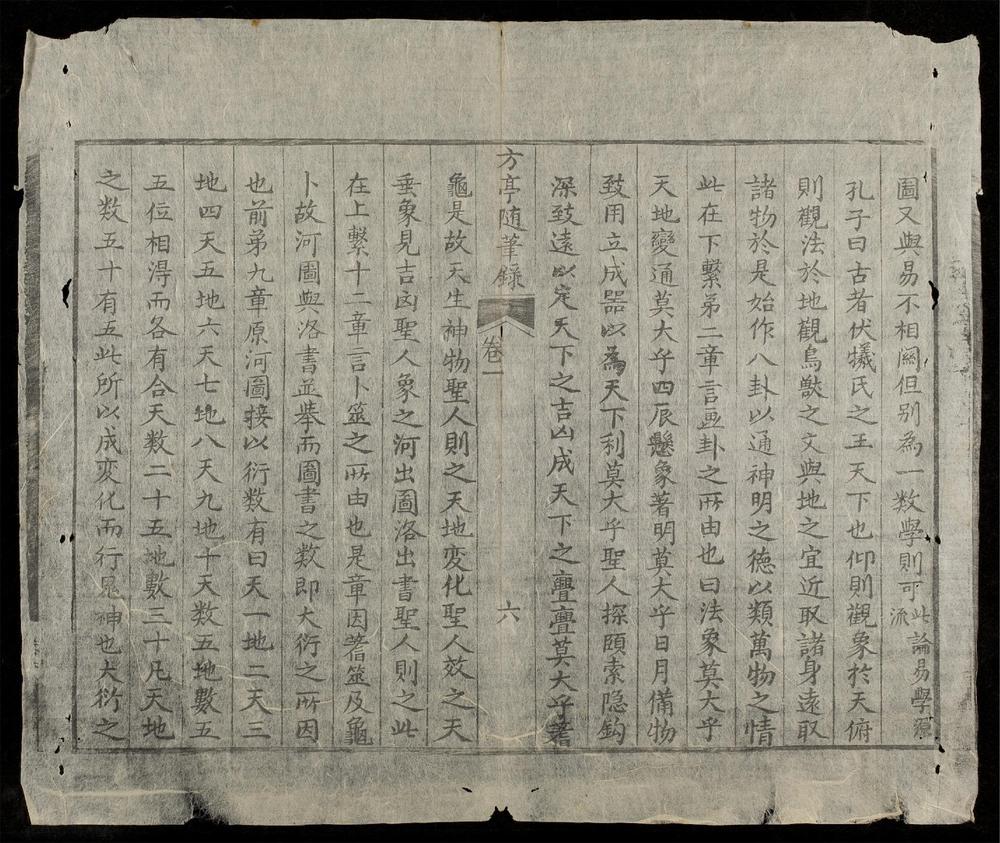 圖又與易不相關但别為一數學則可此論易學源流
孔子曰古者伏犧氏之王天下也仰則觀象於天俯
則觀法於地觀鳥獸之文與地之宜近取諸身遠取
諸物於是始作八卦以通神明之德以類萬物之情
此在下繫第二章言畫卦之所由也曰法象莫大乎
天地變通莫大乎四辰懸象著明莫大乎日月備物
致用立成器以為天下利莫大乎聖人探賾索隐鈎
深致遠以定天下之吉凶成天下之亹亹莫大乎蓍
方亭随筆錄
卷一
六
龜是故天生神物聖人則之天地変化聖人效之天
垂象見吉凶聖人象之河出圖洛出書聖人則之此
在上繫十二章言卜筮之所由也是章因蓍筮及龜
卜故河圖與洛書並舉而圖書之数即大衍之所因
也前弟九章原河圖接以衍数有曰天一地二天三
地四天五地六天七地八天九地十天数五地數五
五位相淂而各有合天数二十五地數三十凡天地
之数五十有五此所以成変化而行鬼神也大衍之